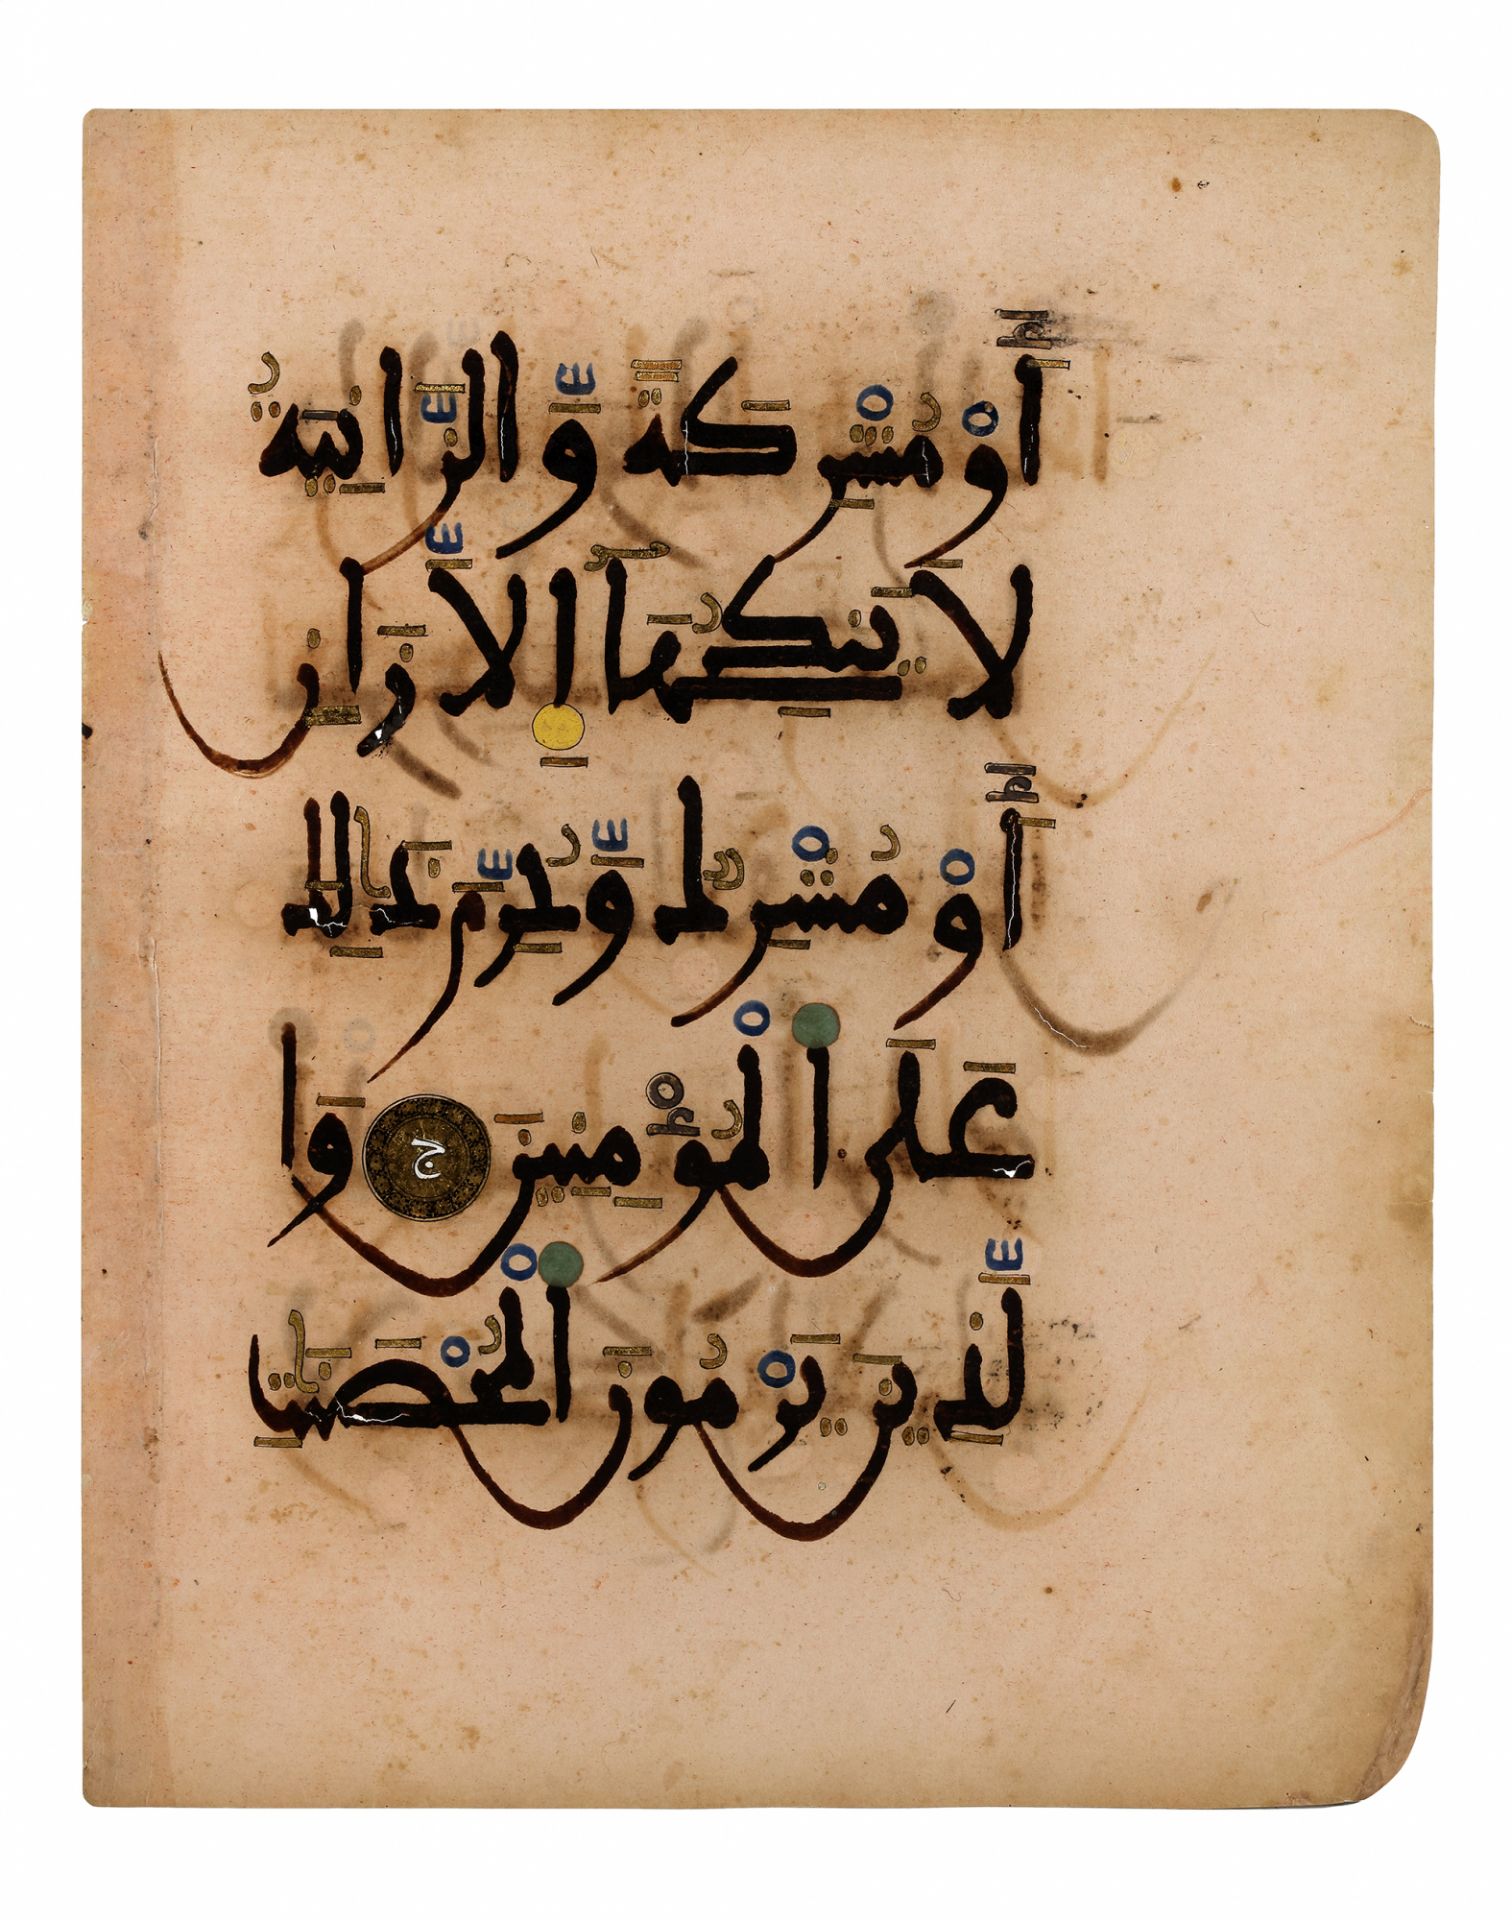 أَوْ مُشْرِكَةً وَّالزَّانِيَةُ
لَا يَنكِحُهَآ إِلَّا زَانٍ
أَوْ مُشْرِكٌ وَّحُرِّمَ ذَٰلِكَ
عَلَى اٰلْمُؤْمِنِينَ ج وَا
لَّذِينَ يَرْمُونَ اٰلْمُحْصَنَٰتِ